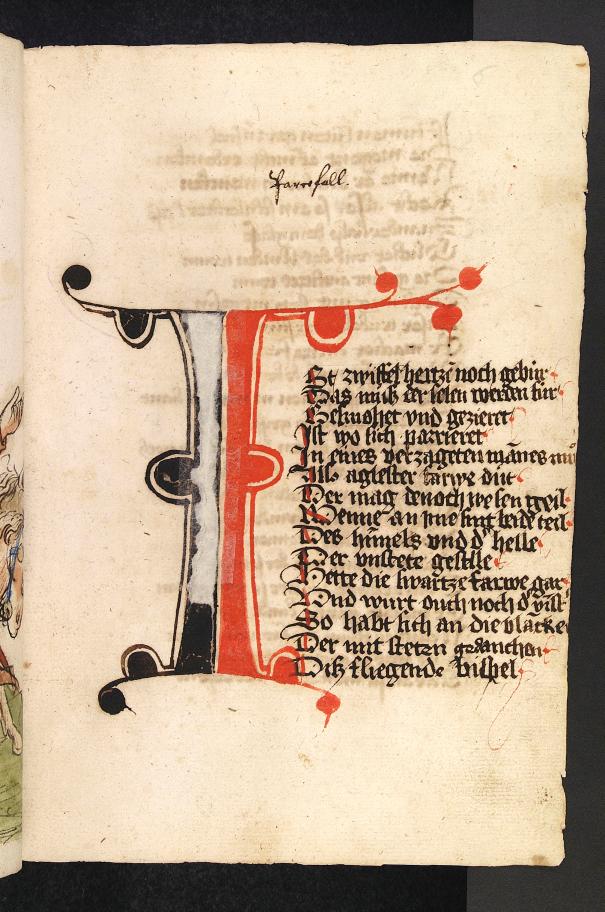 Parcefall.
I
St zwiffel hertze noch gebur
Das muß der selen werden sur
Gesmohet vnd gezieret
Ist wo sich parrieret
In eines verzageten mānes mů
Alß aglester farwe důt
Der mag denoch wesen geil
Wenne an jme sint beide teil
Des hūmels vnd d' helle
Der vnstete geselle
Hette die swartze farwe gar
Vnd wurt ouch noch d' vīst
So habt sich an die blacke
Der mit stetem gedancken
Diß fliegende bispel